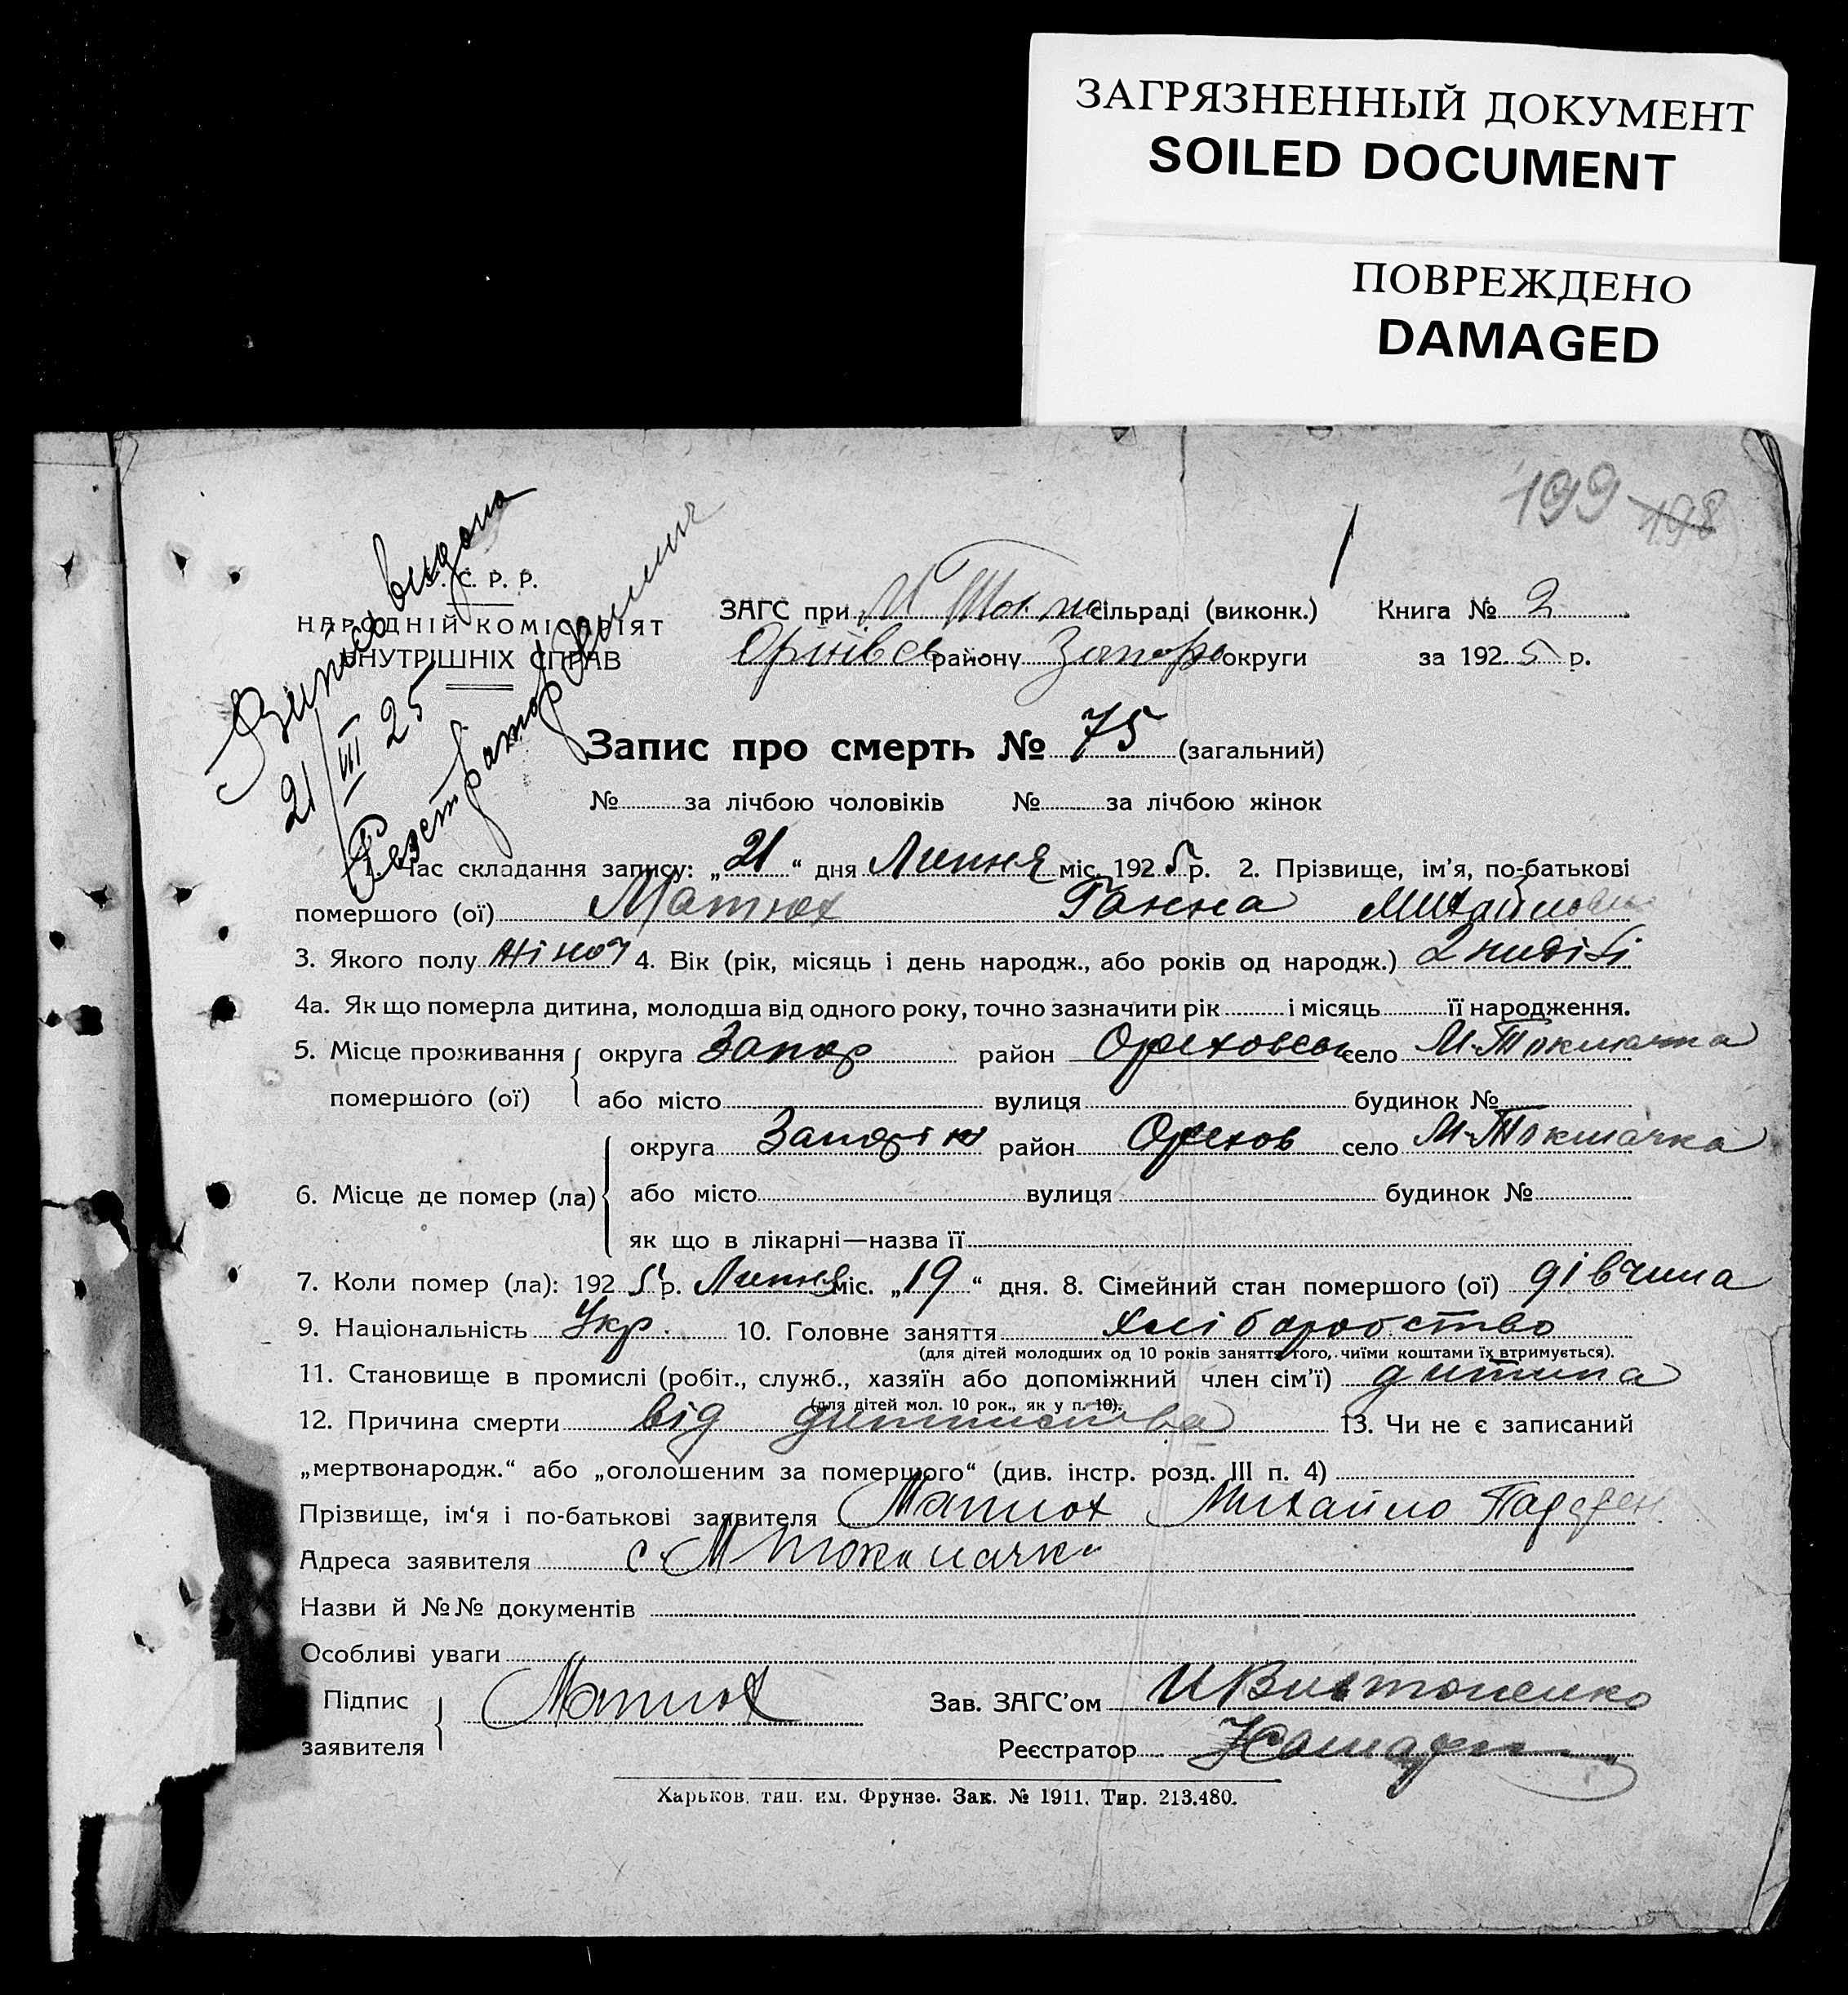 ЗАГРЯЗНЕННЫЙ ДОКУМЕНТ
SOILED DOCUMENT
ПОВРЕЖДЕНО
DAMAGED
199 198
С. Р. Р.
НАРОДНІЙ КОМІСАРІЯТ
ВНУТРІШНІХ СПРАВ
видано
21/VII 25
Реєстратор
ЗАГС при М Ток сільраді (виконк.) Книга № 2
району Запор округи за 1925 р.
Запис про смерть № 75 (загальний)
№ за лічбою чоловіків № за лічбою жінок
1. Час складання запису: „21“ дня Липня міс. 1925 р. 2. Прізвище, ім'я, по-батькові
помершого (ої) Матюх Ганна Михайловна
3. Якого полу жіноч 4. Вік (рік, місяць і день народж., або років од народж.) 2 неділі
4а. Як що померла дитина, молодша від одного року, точно зазначити рік і місяць її народження.
5. Місце проживання округа Запор район Ореховськ село М-Токмачка
помершого (ої) або місто вулиця будинок №
округа район Орехов село М-Токмачка
6. Місце де помер (ла) або місто вулиця будинок №
як що в лікарні—назва її
7. Коли помер (ла): 1925 р. Липня міс. „19“ дня. 8. Сімейний стан помершого (ої) дівчина
9. Національність Укр. 10. Головне заняття хліборобство
(для дітей молодших од 10 років заняття того, чиїми коштами їх втримується).
11. Становище в промислі (робіт., служб., хазяїн або допоміжний член сім'ї) дитина
(для дітей мол. 10 рок., як у п. 10).
12. Причина смерти від 13. Чи не є записаний
„мертвонародж.“ або „оголошеним за помершого“ (див. інстр. розд. III п. 4)
Прізвище, ім'я і по-батькові заявителя Матюх Михайло
Адреса заявителя с. М Токмачки
Назви й №№ документів
Особливі уваги
Підпис
заявителя Матюх
Зав. ЗАГС'ом
Реєстратор
Харьков, тип. им. Фрунзе. Зак. № 1911. Тир. 213.480.